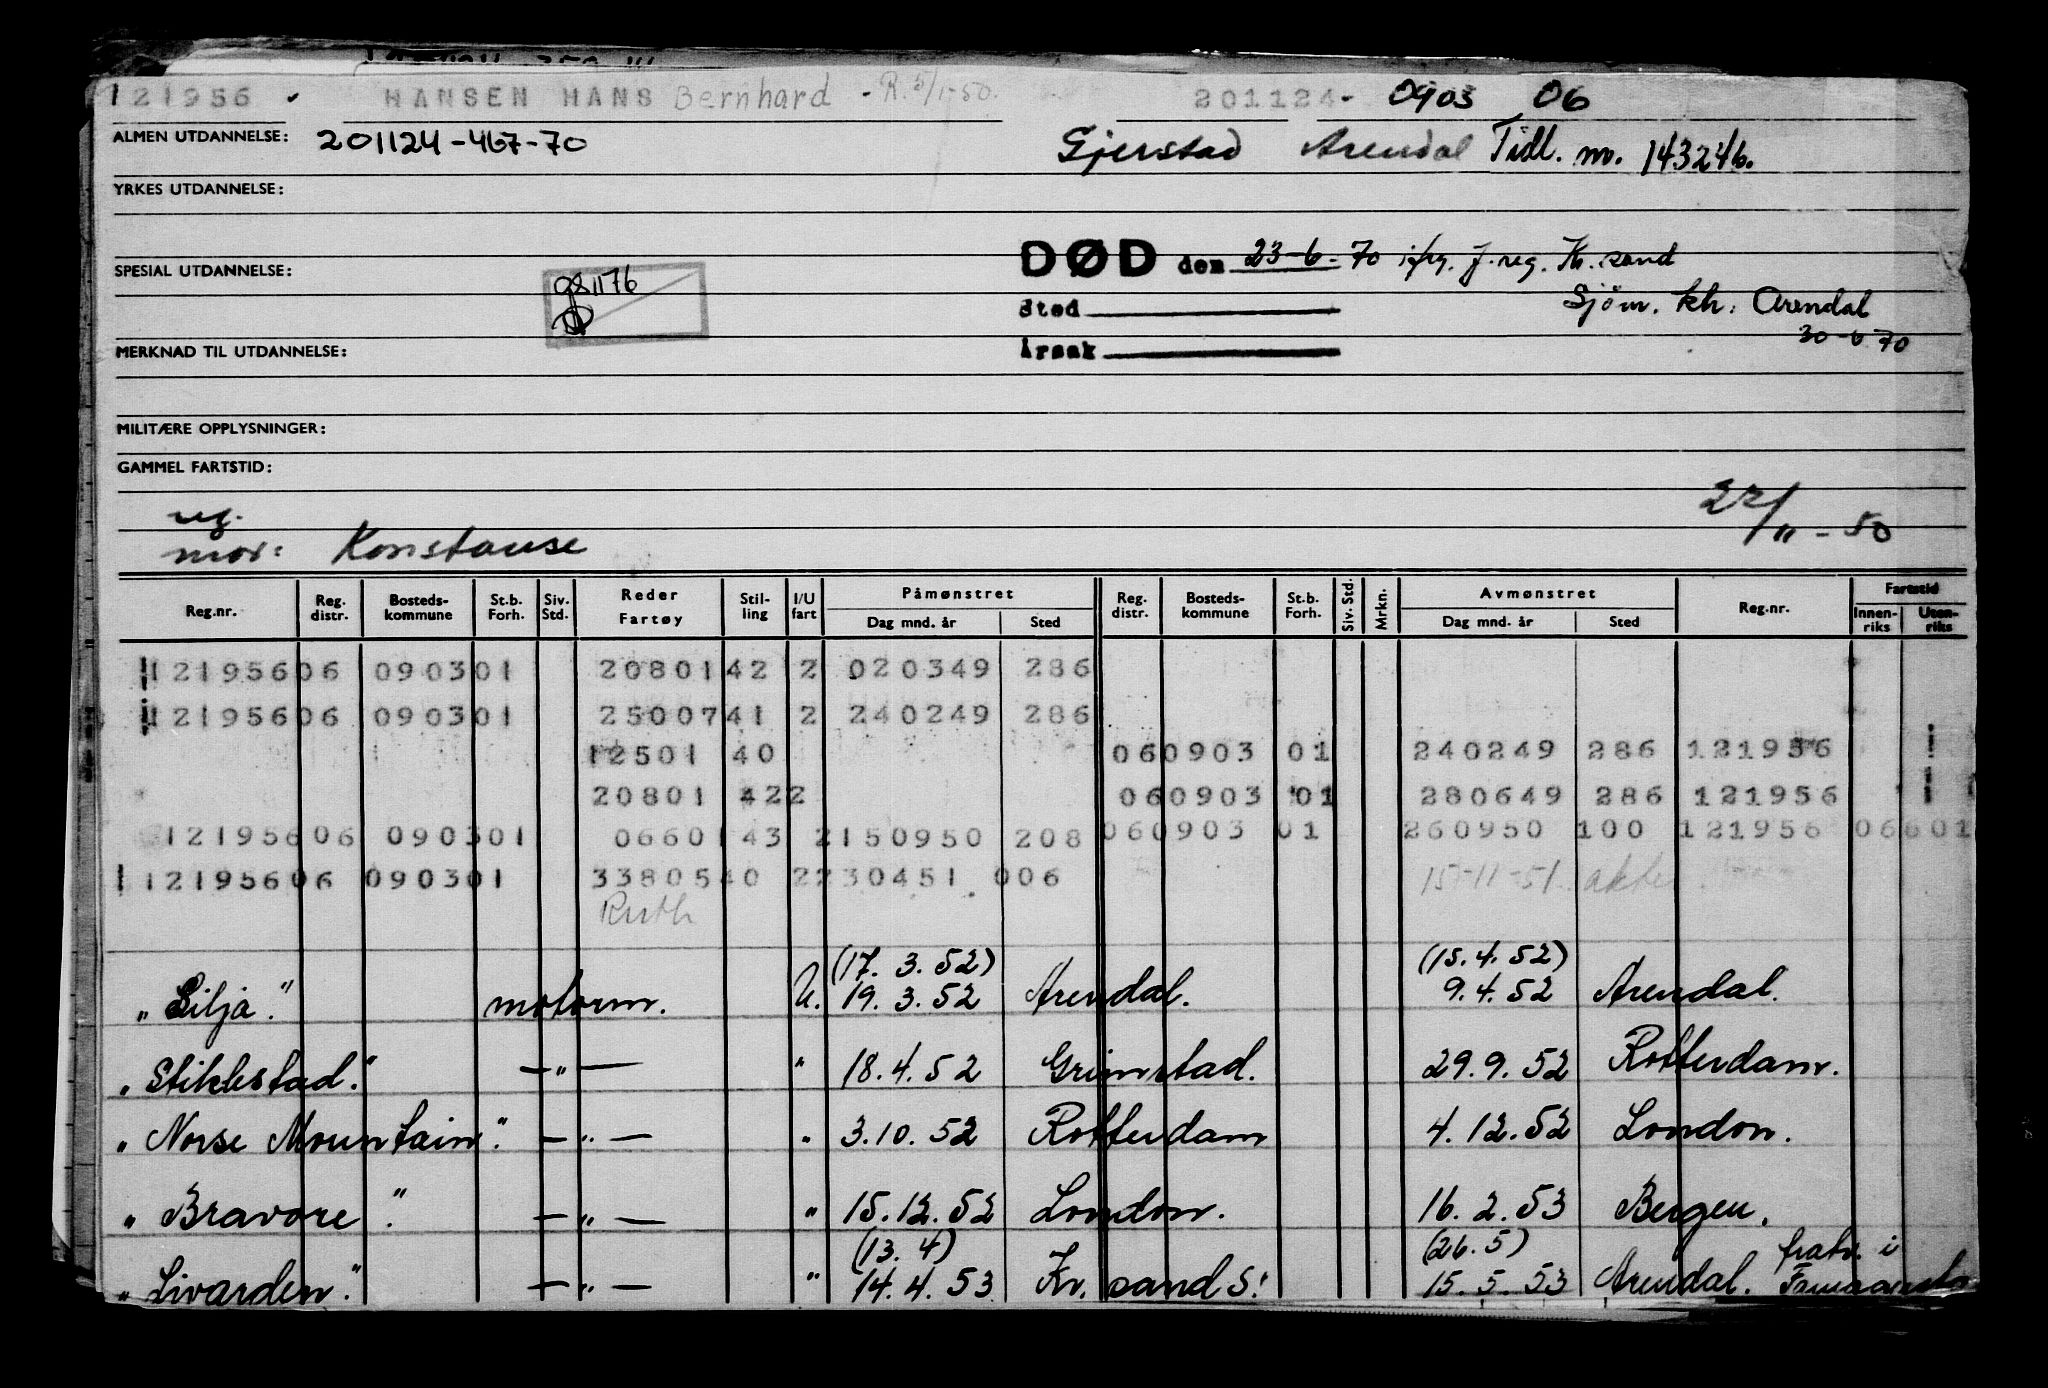 121956 HANSEN HANS Bernhard - R. 5/1-50. 201124- 0903 06
ALMEN UTDANNELSE: 201124-467-70 Gjerstad Arendal Tidl. nr. 143246.
YRKES UTDANNELSE:
DØD den 23-6-70 ifg. J. reg. Kr. sand
SPESIAL UTDANNELSE: 081176
Sted Sjöm. kh: Arendal
30-6 70
MERKNAD TIL UTDANNELSE: Årsak
MILITÆRE OPPLYSNINGER:
GAMMEL FARTSTID:
reg. 22/11-50
mor: Konstanse
Reg.nr. Reg. distr. Bosteds-kommune St.b. Forh. Siv. Std. Reder Fartøy Stil-ling I/U fart Påmønstret Dag mnd. år Sted Reg. distr. Bosteds-kommune St.b. Forh. Siv. Std. Mrkn. Avmønstret Dag mnd. år Sted Reg.nr. Fartstid Innen-riks Uten-riks
121956 06 0903 01 20801 42 2 020349 286
121956 06 0903 01 25007 41 2 240249 286
12501 40 06 0903 01 240249 286 121956
20801 42 2 06 0903 01 280649 286 121956
121956 06 0903 01 06601 43 2 150950 208 06 0903 01 260950 100 121956 06601
121956 06 0903 01 33805 40 2 230451 006 15-11-51
Ruth
(17. 3. 52) (15. 4. 52)
„Lilja." motorm. U. 19. 3. 52 Arendal. 9. 4. 52 Arendal.
„Stiklestad." —„— " 18. 4. 52 Grimstad. 29. 9. 52 Rotterdam.
„Norse Mountain". —„— " 3. 10. 52 Rotterdam 4. 12. 52 London.
„Bravore". —„— " 15. 12. 52 London. 16. 2. 53 Bergen.
(13. 4) (26. 5) fratr. i
„Livarden." —„— " 14. 4. 53 Kr. sand S. 15. 5. 53 Arendal.